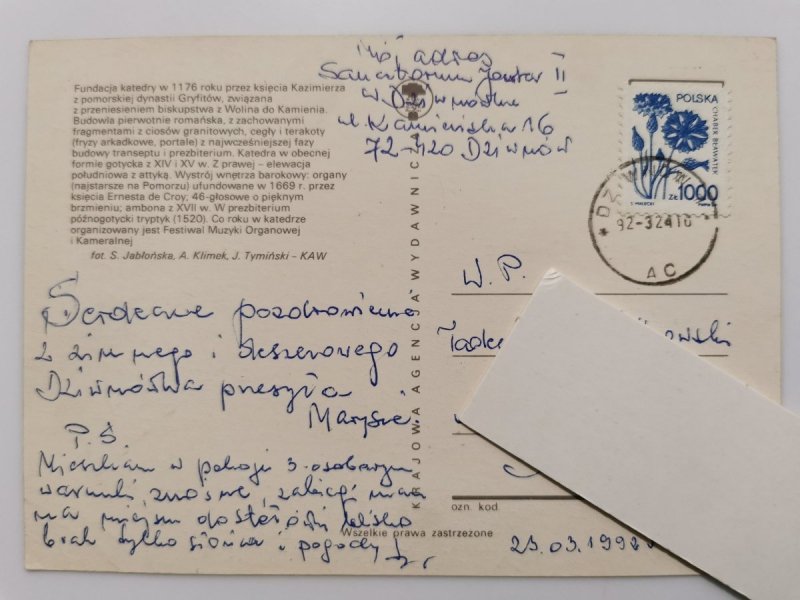 Fundacja katedry w 1176 roku przez księcia Kazimierza
z pomorskiej dynastii Gryfitów, związana
z przeniesieniem biskupstwa z Wolina do Kamienia.
Budowla pierwotnie romańska, z zachowanymi
fragmentami z ciosów granitowych, cegły i terakoty
(fryzy arkadkowe, portale) z najwcześniejszej fazy
budowy transeptu i prezbiterium. Katedra w obecnej
formie gotycka z XIV i XV w. Z prawej – elewacja
południowa z attyką. Wystrój wnętrza barokowy: organy
(najstarsze na Pomorzu) ufundowane w 1669 r. przez
księcia Ernesta de Croy; 46-głosowe o pięknym
brzmieniu; ambona z XVII w. W prezbiterium
późnogotycki tryptyk (1520). Co roku w katedrze
organizowany jest Festiwal Muzyki Organowej
i Kameralnej
fot. S. Jabłońska, A. Klimek, J. Tymiński - KAW
Mój adres
Sanatorium Jantar II
w Dziwnówku
ul. Kamieńska 16
72-420 Dziwnów
POLSKA
CHABER BŁAWATEK
ZŁ 1000
S. MAŁECKI
92-3.24.10
AC
KRAJOWA AGENCJA WYDAWNICZA
Serdeczne pozdrowienia
z zimnego i deszczowego
Dziwnówka przesyła
Marysia
P.S.
Mieszkam w pokoju 3 osobowym
warunki znośne, zabiegi mam
na miejscu do stołówki blisko
brak tylko słońca i pogody
W.P.
ozn. kod
Wszelkie prawa zastrzeżone
23.03.1992